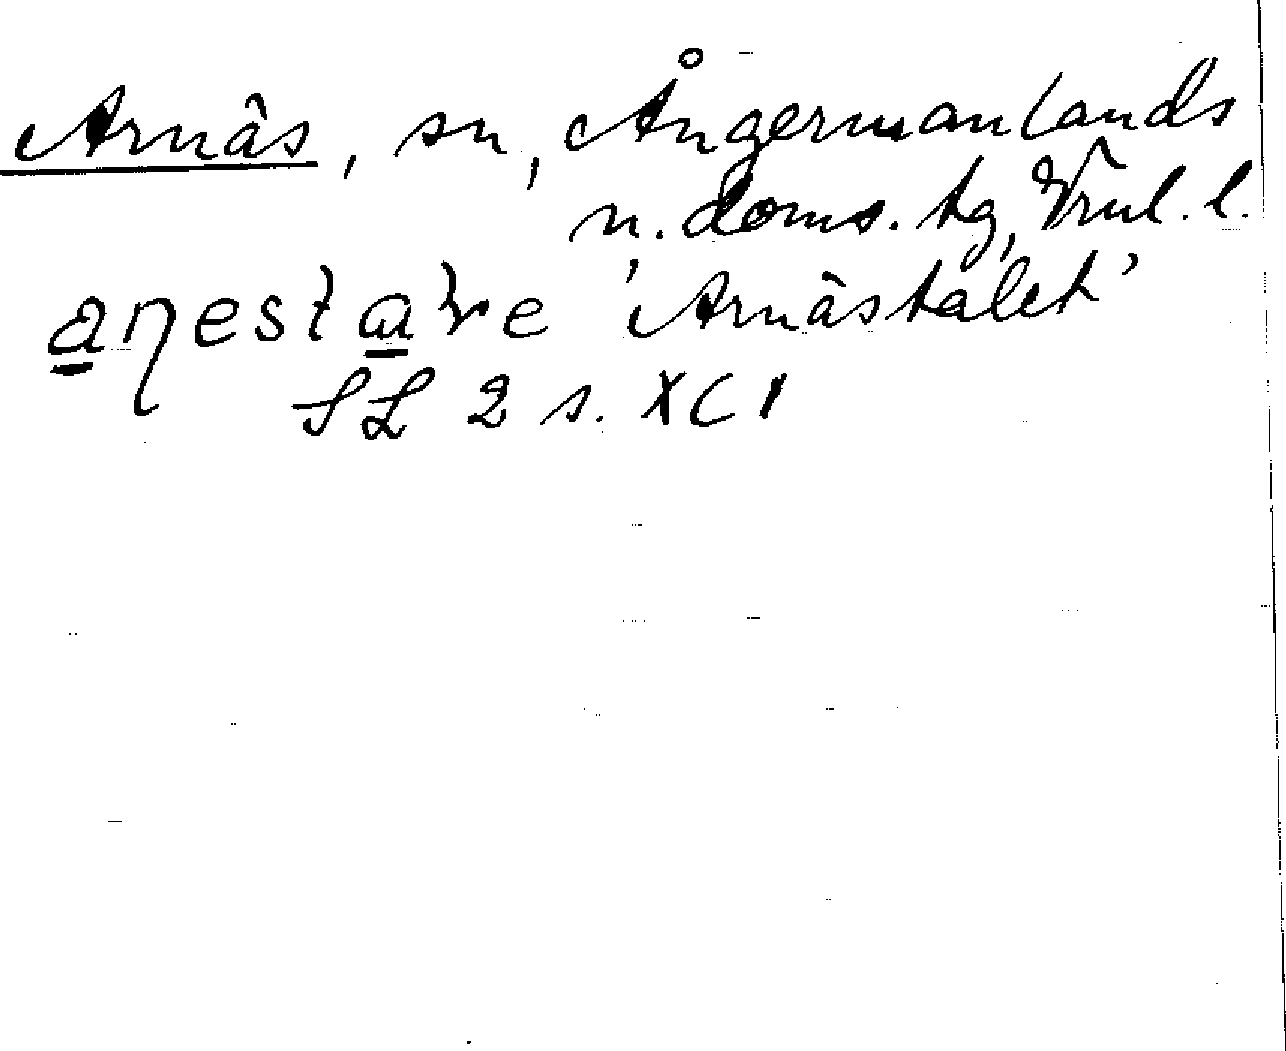 Arnäs, sn, Ångermanlands
n. doms. tg, Vrnl. l.
'Arnästalet'
SL 2 s. XCI